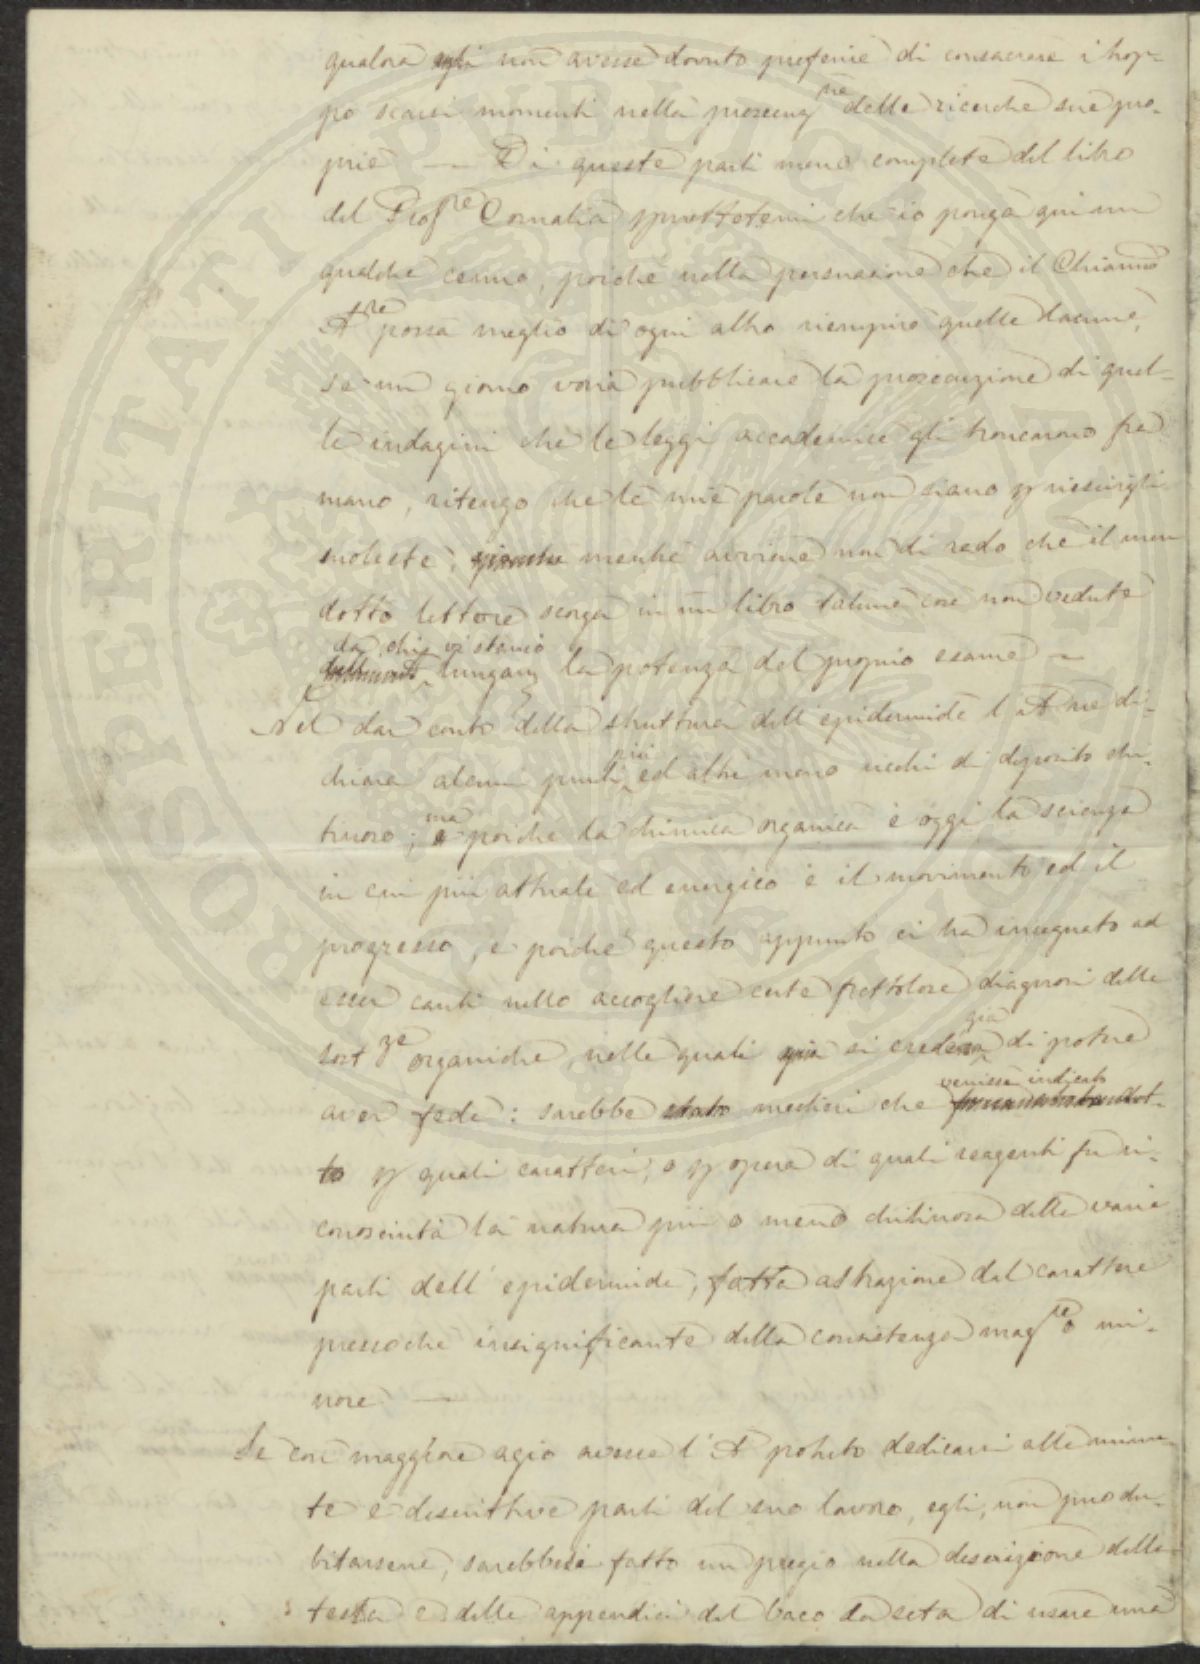 qualora egli non avesse dovuto preferire di consacrare i trop-
po scarsi momenti nella prosecuz.ne delle ricerche sue pro-
prie — Di queste parti meno complete del libro
del Prof.re Cornalia permettetemi che io ponga qui un
qualche cenno, poiché nella persuasione che il Chiarmo
A.re possa meglio di ogni altro riempire quelle lacune,
se un giorno vorrà pubblicare la prosecuzione di quel-
le indagini che le leggi accademiche gli troncarono fra
mano, ritengo che le mie parole non siano p riescirgli
moleste; mentre avviene non di rado che il men
dotto lettore scorga in un libro talune cose non vedute
da chi vi stancò
lungam. la potenza del proprio esame —
Nel dar conto della struttura dell'epidermide l'A. ne di-
chiara alcuni punti più ed altri meno ricchi di deposito chi-
tinoso; ma poiche la chimica organica è oggi la scienza
in cui più attuale ed energico è il movimento ed il
progresso, e poiché questo appunto ci ha insegnato ad
esser cauti nello accogliere certe frettolose diagnosi delle
sost.ze organiche, nelle quali già si credeva già di potere
aver fede: sarebbe stato mestieri che venisse indicato
to p quali caratteri, o p opera di quali reagenti fu ri-
conosciuta la natura più o meno chitinosa delle varie
parti dell'epidermide, fatta astrazione dal carattere
pressoché insignificante della consistenza mag.re o mi-
nore —
Se con maggiore agio avesse l'A. potuto dedicarsi alle minu-
te e descrittive parti del suo lavoro, egli, non può du-
bitarsene, sarebbesi fatto un pregio nella descrizione della
testa e delle appendici del baco da seta di usare una